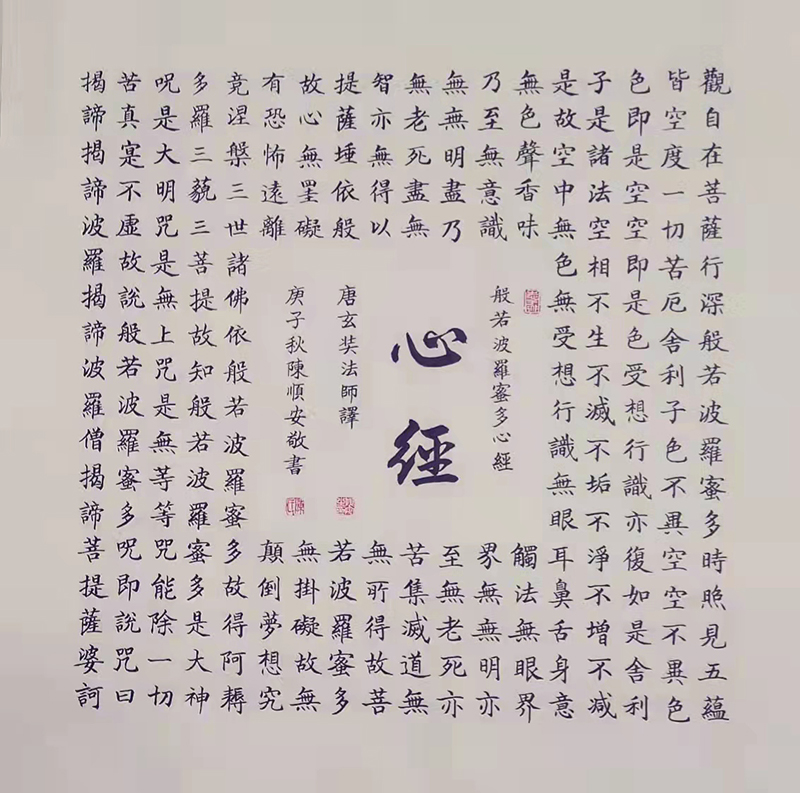 觀自在菩薩行深般若波羅蜜多時照見五蘊
皆空度一切苦厄舍利子色不異空空不異色
色即是空空即是色受想行識亦復如是舍利
子是諸法空相不生不滅不垢不淨不增不減
是故空中無色無受想行識無眼耳鼻舌身意
無色聲香味
觸法無眼界
乃至無意識
界無無明亦
無無明盡乃
至無老死亦
無老死盡無
苦集滅道無
智亦無得以
無所得故菩
提薩埵依般
若波羅蜜多
故心無罣礙
無掛礙故無
有恐怖遠離
顛倒夢想究
竟涅槃三世諸佛依般若波羅蜜多故得阿耨
多羅三藐三菩提故知般若波羅蜜多是大神
呪是大明咒是無上咒是無等等咒能除一切
苦真寔不虛故說般若波羅蜜多呪即說咒曰
揭諦揭諦波羅揭諦波羅僧揭諦菩提薩婆訶
般若波羅蜜多心經
心經
唐玄奘法師譯
庚子秋陳順安敬書